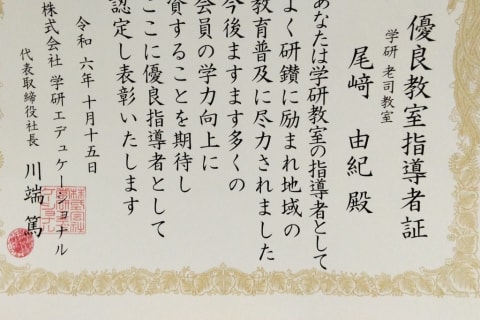 優良教室指導者証
学研 老司教室
尾﨑 由紀 殿
あなたは学研教室の指導者として
よく研鑽に励まれ地域の
教育普及に尽力されました
今後ますます多くの
会員の学力向上に
資することを期待し
ここに優良指導者として
認定し表彰いたします
令和六年十月十五日
株式会社 学研エデュケーショナル
代表取締役社長 川端 篤